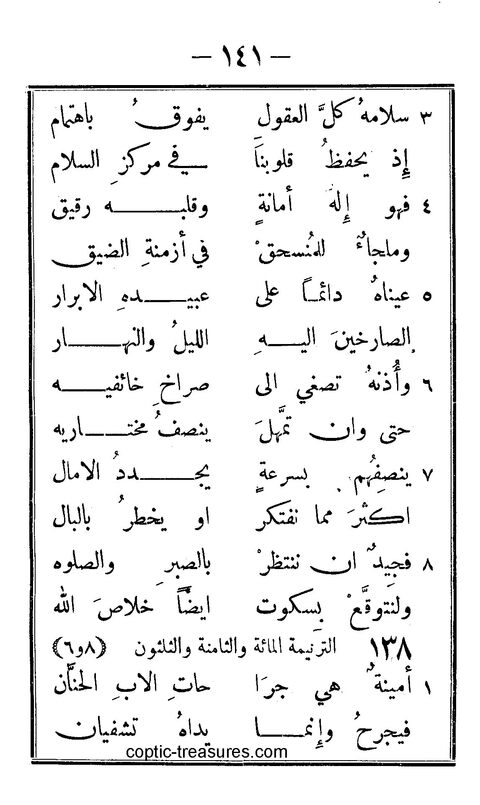 — ١٤١ —
٣ سلامهُ كلَّ العقول يفوقُ باهتمام
إِذ يحفظُ قلوبنا في مركزِ السلام
٤ فهو إِلهُ أمانةٍ وقلبه رقيق
وملجاءٌ للمُنسحقْ في أزمنةِ الضيق
٥ عيناهُ دائماً على عبيدهِ الابرار
الصارخينَ اليهِ الليلُ والنهار
٦ وأُذنهُ تصغي الى صراخِ خائفيه
حتى وان تمَّهلَ ينصفُ مختاريه
٧ ينصفِهُم بسرعةٍ يجددُ الامال
اكثرَ مما نفتكر او يخطرُ بالبال
٨ فجيدٌ ان ننتظرْ بالصبرِ والصلوه
ولنتوقَّعْ بسكوت ايضاً خلاصَ الله
١٣٨ الترنيمة المائة والثامنة والثلثون (٨و٦)
١ أمينةٌ هي جرا حات الابِ الحنَّان
فيجرحُ وإنما يداهُ تشفيان
coptic-treasures.com